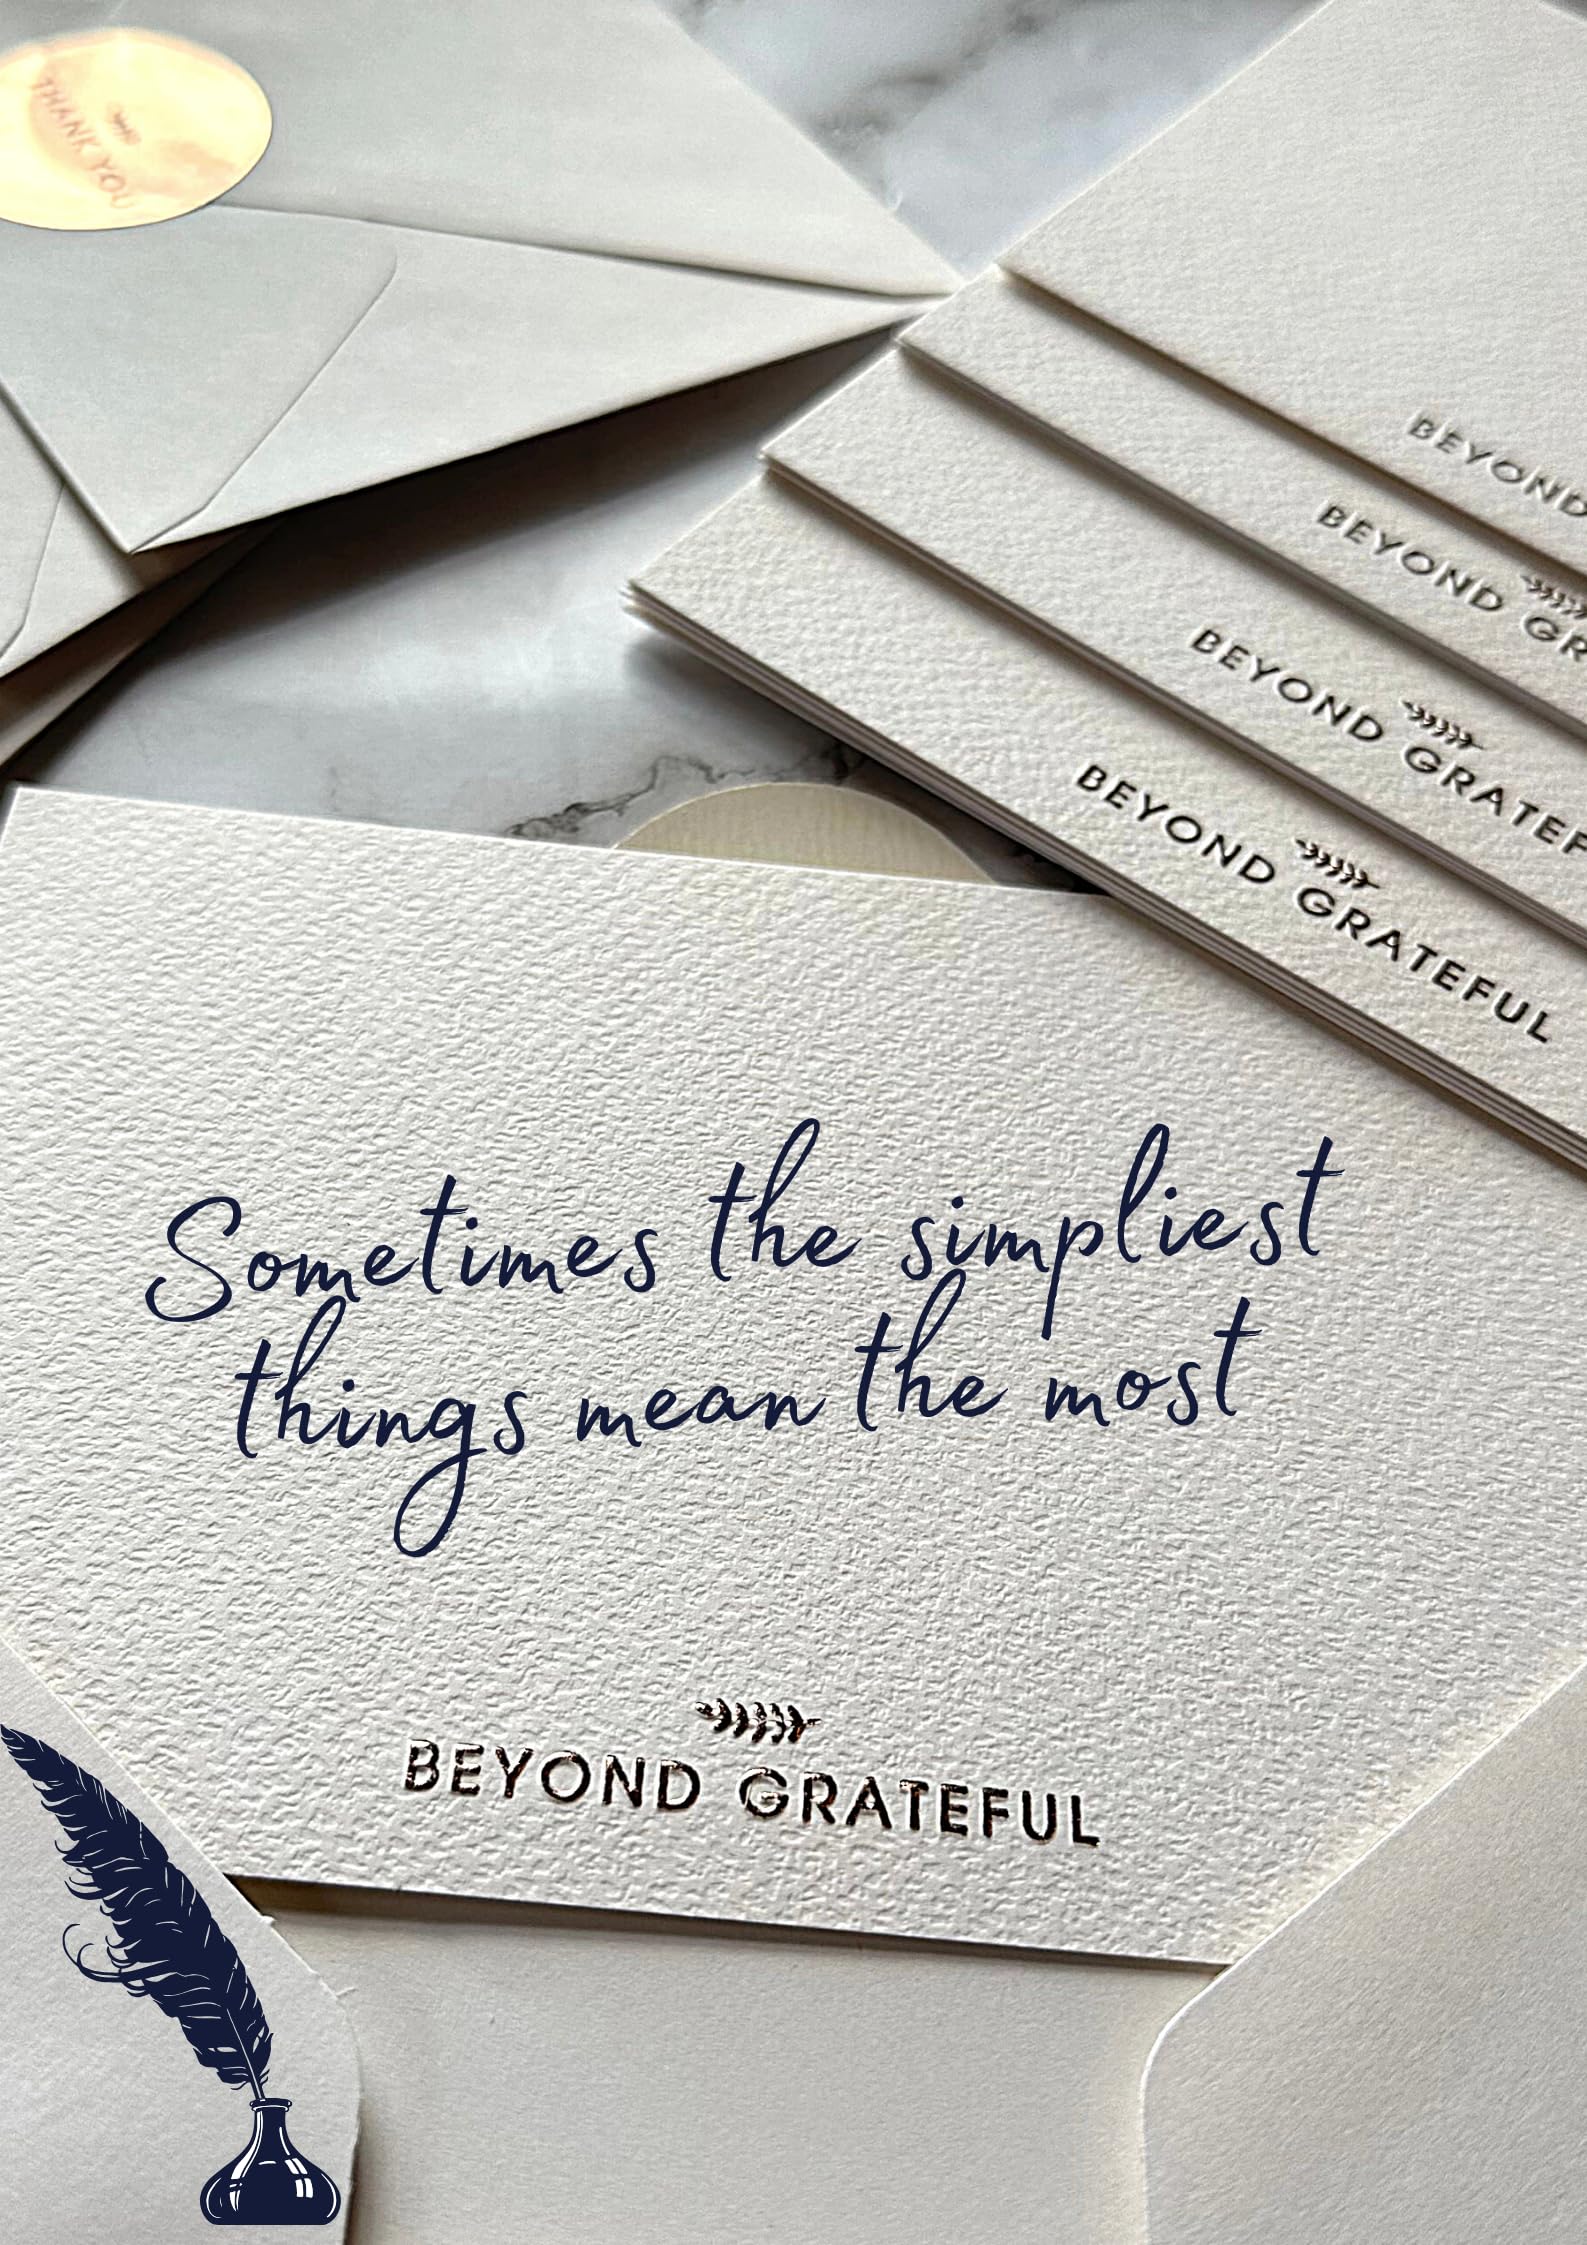 THANK YOU
BEYOND
BEYOND GR
BEYOND GRATEF
BEYOND GRATEFUL
Sometimes the simpliest
things mean the most
BEYOND GRATEFUL